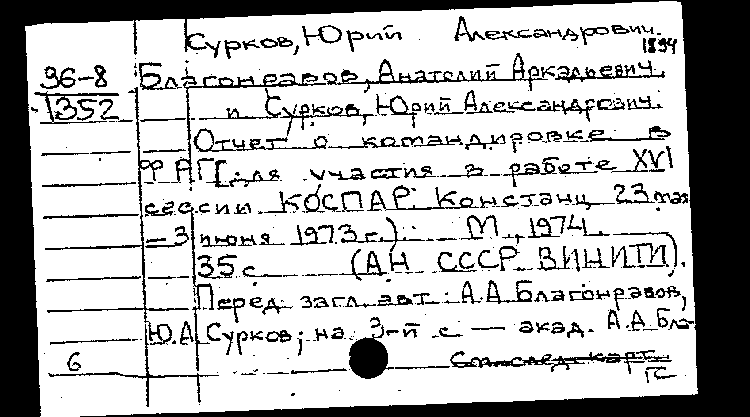 Сурков, Юрий Александрович.
1894
96-8 Благонравов, Анатолий Аркадьевич.
1352 и Сурков, Юрий Александрович.
Отчет о командировке в
ФРГ [для участия в работе XVI
сессии КОСПАР. Констанц 23 мая
– 3 июня 1973 г.). М., 1974.
35 с. (АН СССР. ВИНИТИ).
Перед загл. авт.: А.А. Благонравов,
Ю.А. Сурков; на 3-й с — акад. А.А. Бла-
6 См. след. карт.
ГС